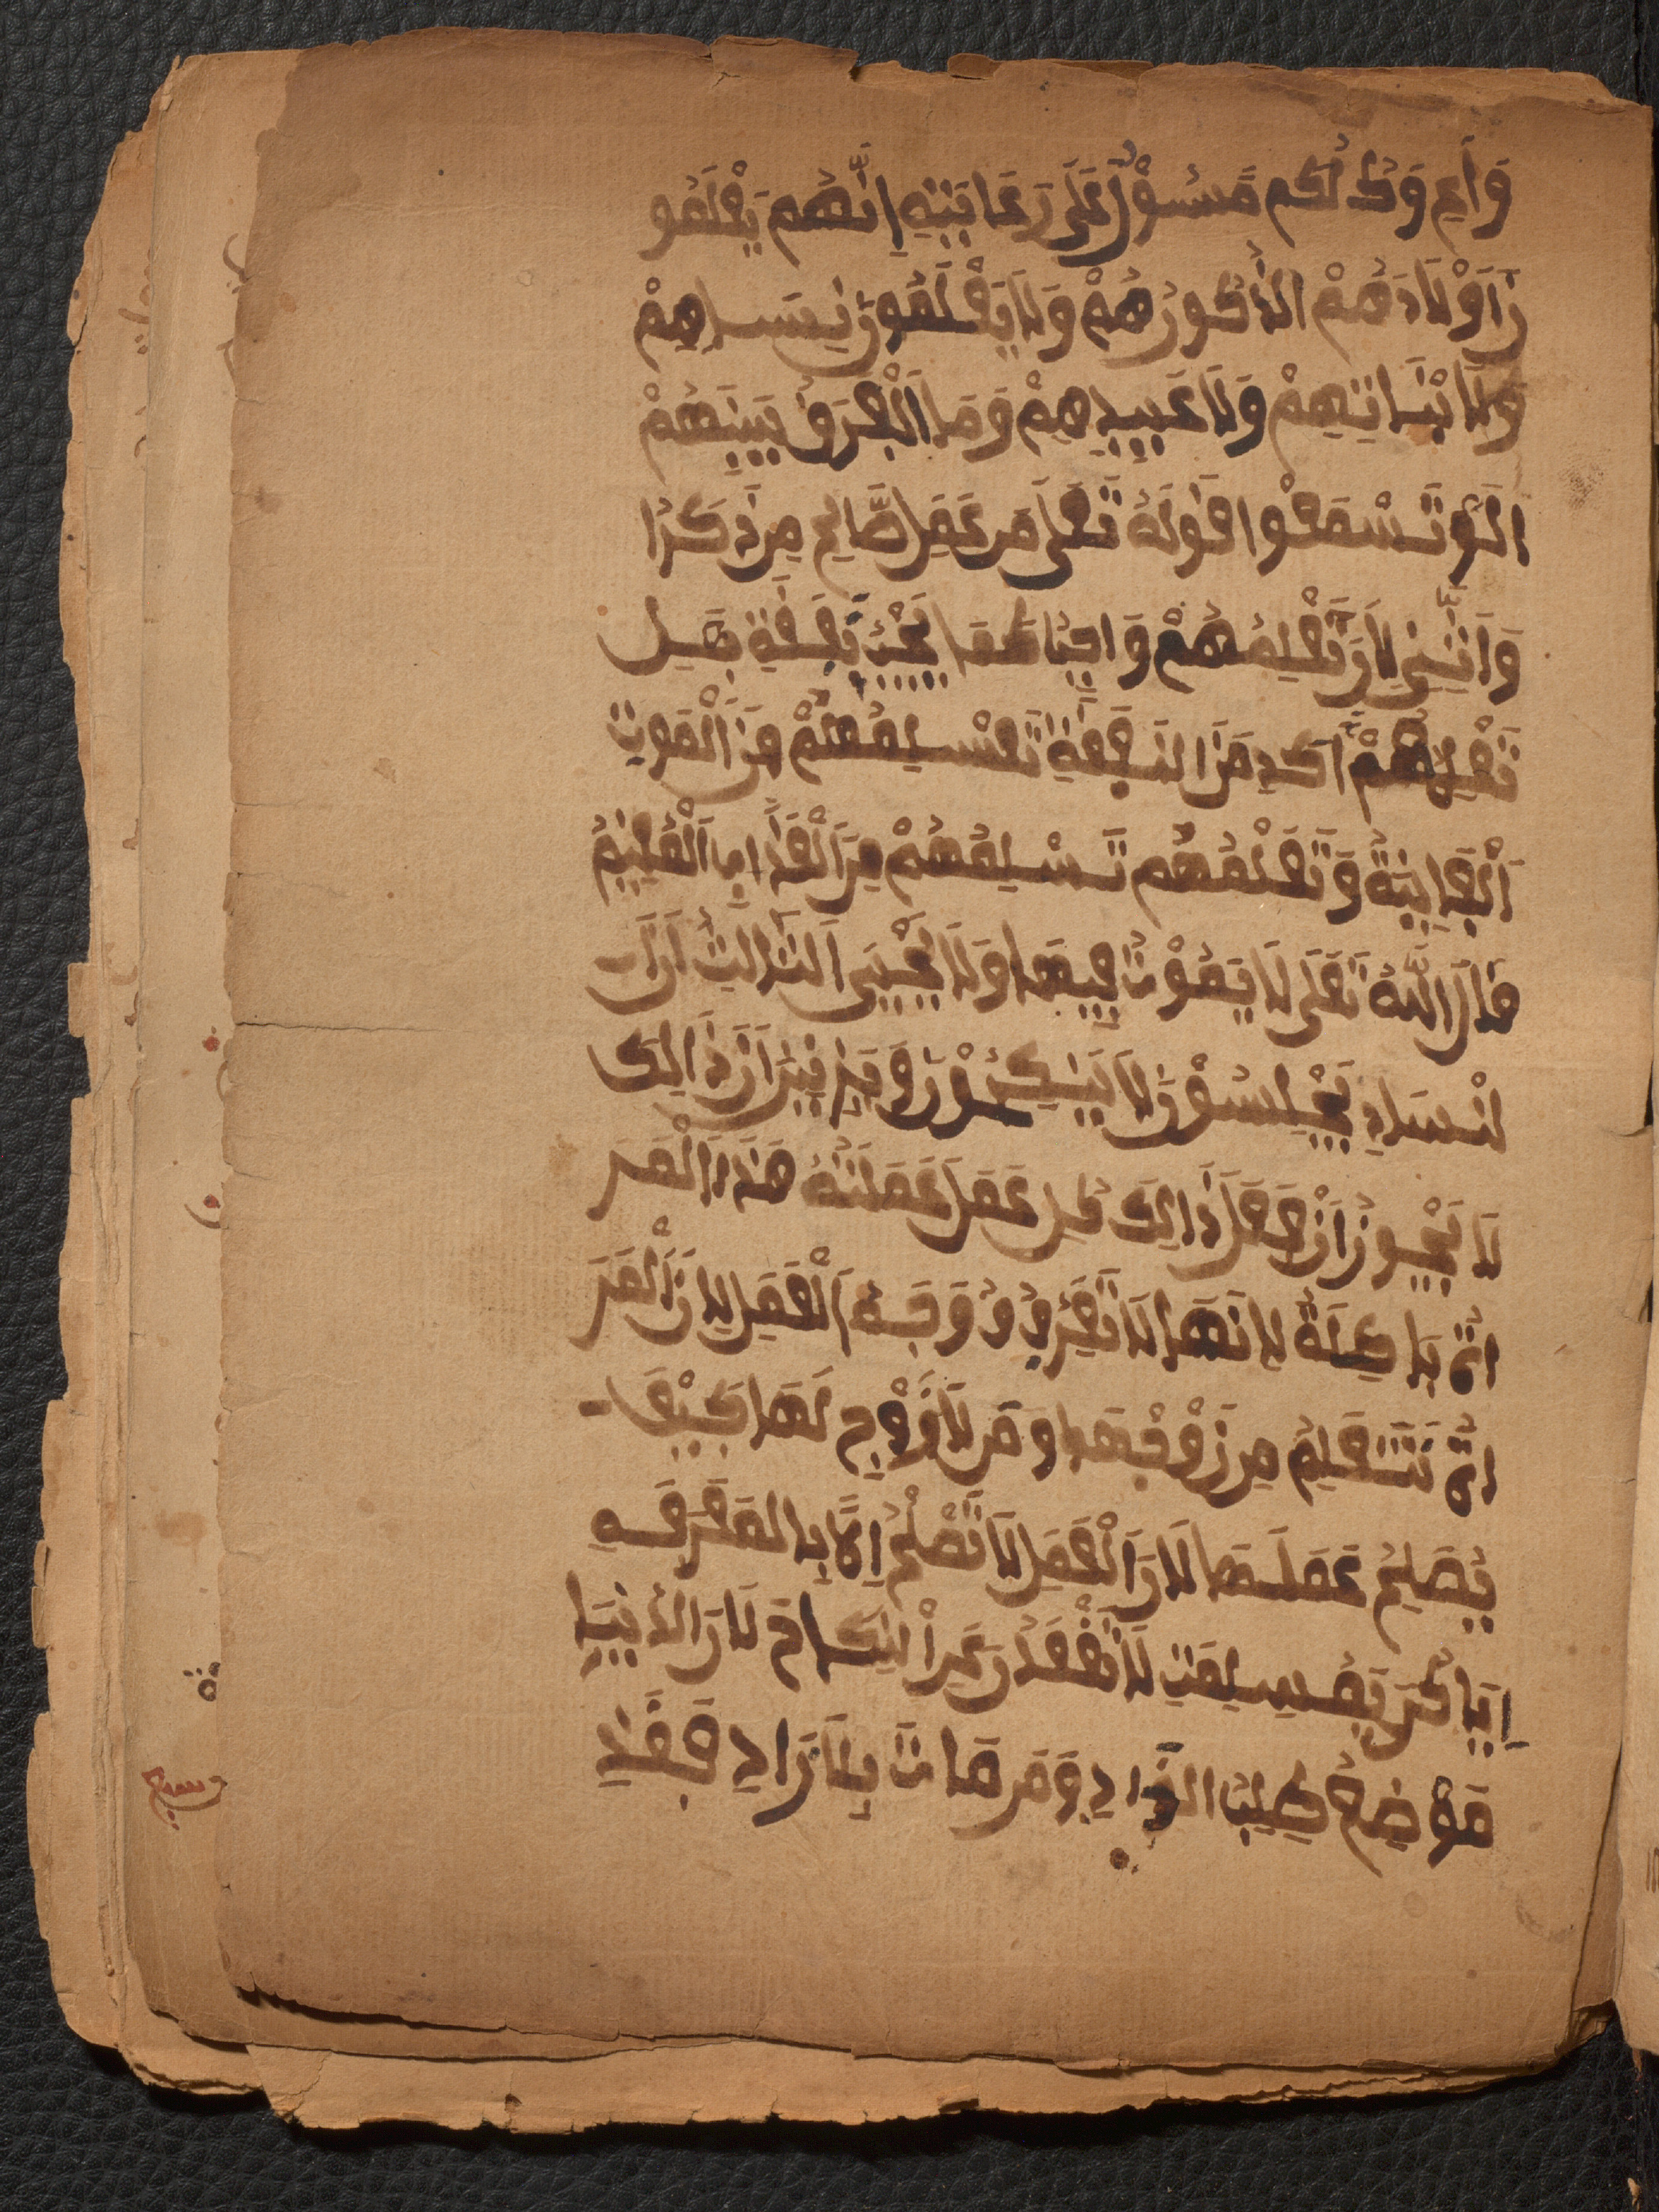 وَاعٍ وَكُلُّكُم مَّسْئُولٌ عَلَى رَعَايَتِهِ اِنَّهُم يَعْلَمُو
نَ اَوْلَادَهُمْ الذُّكُورُهُمْ وَلَا يَعْلَمُونَ نِسَاءِهِمْ
وَلَا بْنَاتِهِمْ وَلَا عَبِيدِهِمْ وَمَا الْفَرَقُ بَيْنَهُمْ
الَمْ تَسْمَعُوا قَوْلَهُ تَعَلَى مَن عَمِلَ صَّالِحٍ مِن ذَكَرٍ ا
وَانْثِىٰ لِاَنَّ تَعْلِيمُهُمْ وَاجِبًا كَمَا يَجِبُ نَّفَقَةِ بَلْ
تَعْلِمُهُمْ آكَدِ مَنَ النَفَقَةِ تَسْلِمُهُمْ مِنَ الْمَوْتِ
اَلْفَانِيَةُ وَتَعَلُّمُهُم تَسْلِمُهُمْ مِنَ الْعَذَابِ اَلْعَلِيمُ
قَالَ اللَّهُ تَعَلَى لَا يَمُوتُ فِيهَا وَلَا يَحْيَى اَلثَّالِثُ اَنَّ
لنْسَاءِ يَجْلِسُونَ لَا يَنْكِحُونَ وَيَزْنِينَ اَنَّ ذَالِكَ
لَا يَجُوزُ اَنْ فَعَلَ ذَالِكَ كُل عَمَل عَمَلَتْهُ هَذَا الْمَر
اةُ بَاطِلَةٌ لِانَهَا لَا تَعْرِفُ وُوَجَهُ اَلْعَمَلِ لِانَّ الْمَر
اةُ تَتَعَلِمُ مِن زَوْجِهَا وَمَن لَا زَوْجَ لَهَا كَيْفَ
يُصَلِحُ عَمَلَهَا لَانَ الْعَمَلَ لَا تَصْلُحُ اِلَّا بِالمَعْرَفَهِ
اِيَاكُنَ لَا تَقْعَدْنَ عَنِ النِكَاحَ لَانَ الدُنْيَا
مَوْضِعُ طَلِبُ الزَّادِ وَمَن مَاتَ بِلَا زَادِ فَقَدْ